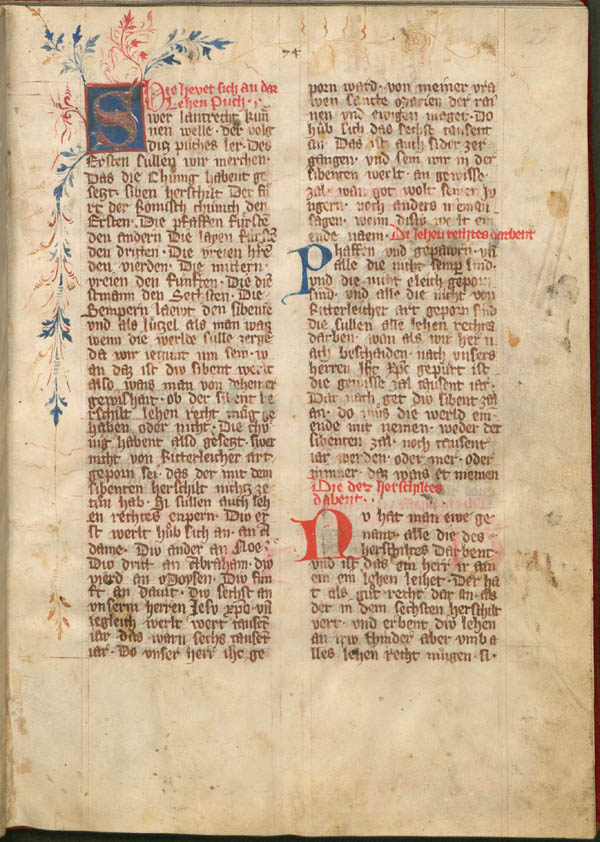 Hie hevet sich an daz
Lehen Puch
Swer lantrecht kun
nen welle · der volg
ditz puches ler · Des
Ersten sullen wir merchen ·
Das die Chunig habent ge
setzt · siben herschilt Der fu
rt der Romisch chunich den
Ersten · Die pfaffen fursten
den andern Die layen fursten
den dritten · Die vreien h're
den vierden · Die mittern
vreien den funften · Die die
stmann den Sechsten · Die
Sempern laewt den sibente
und als lutzel als man waz
wenn die werlde sulle zerge
da wir ietzunt inn sein · w
an daz ist div sibent werlt
also wais man von dehener
gewishait · ob der sibent he
rschilt lehen recht mug ge
haben oder nicht · Die chu
nig habent also gesetzt · swer
nicht von Ritterleicher art
geporn sei · das der mit dem
sibenten herschilt nichtz ze
tun hab · Si sullen auch leh
en rechtes enpern · Div er
st werlt hub sich an · an A
dame · Div ander an Noe ·
Div dritt an Abraham · div
vierd an Moysen · Div fun
ft an dauit · Div sechst an
unserm herren Jesv xpo vn
iegleich werlt wert tausent
iar · das warn sechs tausent
iar · Do vnser herr ihc ge
porn ward · von meiner vra
wen sancte Marien der rai
nen vnd ewigen maget · Do
hub sich das sechst tausent
an · Das ist auch sider zer
gangen · vnd sein wir in der
sibenten werlt · an gewisse
zal · wan got wolt seinen iu
ngern · noch anders niemen
sagen · wenn disiv welt ein
ende naem · Di lehen rechtes darbent
Phaffen vnd gepawrn · vn
alle die nicht semper sind ·
vnd die nicht eleich geporn
sind · vnd alle die nicht von
Ritterleicher art geporn sind
die sullen alle lehen rechtes
darben · wan als wir her n
ach beschaiden · nach vnsers
herren Ihc Xpc gepurt ist
die gewisse zal tausent iar ·
Dar nach get div sibent zal
an · do mus die werld ein
ende mit nemen · weder der
sibenten zal · noch tausent
iar werden · oder mer · oder
minner · daz wais et niemen
Die der herschiltes
dabent · ·
Nv hat man ewe ge
nant · alle die des
herschiltes darbent ·
vnd ist das ein herr ir aim
ein ein lehen leihet · Der ha
t als gut recht dar an · als
der in dem sechsten herschilt
vert · vnd erbent div lehen
an irw chinder aber vmb a
lles lehen recht mugen si ·